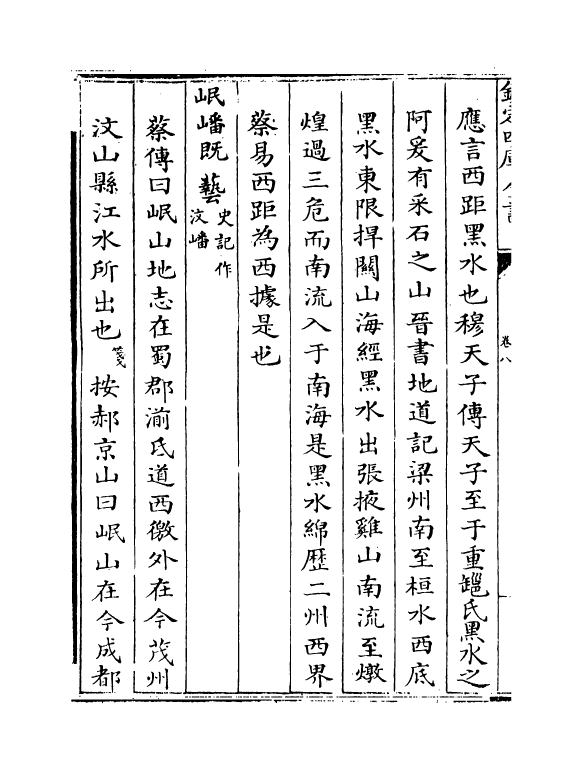 欽定四庫全書
卷八
應言西距黑水也穆天子傳天子至于重𨤲氏黑水之
阿爰有采石之山晉書地道記梁州南至桓水西底
黑水東限捍關山海經黑水出張掖雞山南流至燉
煌過三危而南流入于南海是黑水綿歷二州西界
蔡易西距為西據是也
岷嶓既藝史記作汶嶓
蔡傳曰岷山地志在蜀郡湔氐道西徼外在今茂州
汶山縣江水所出也箋按郝京山曰岷山在今成都